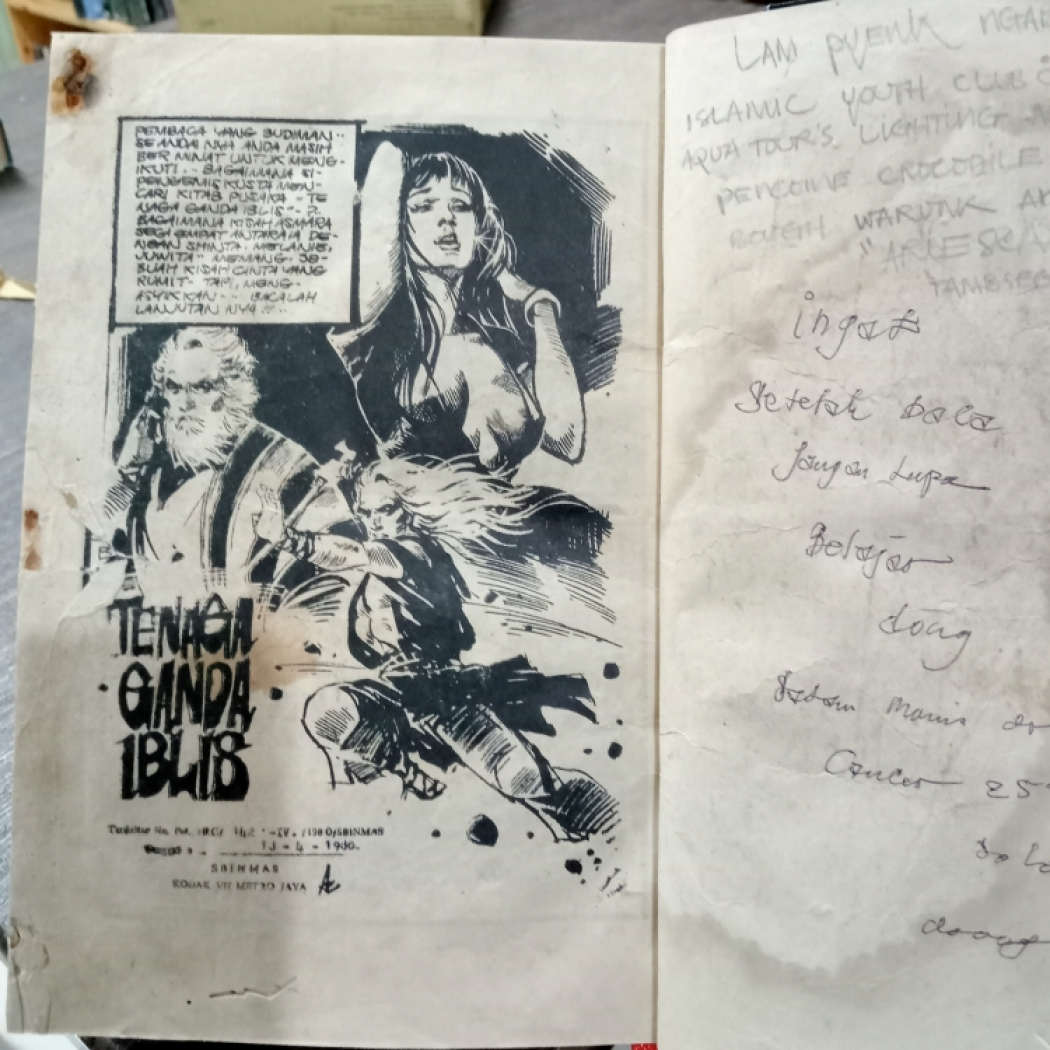 PEMBACA YANG BUDIMAN..
SEANDAI NYA ANDA MASIH
BER MINAT UNTUK MENG-
IKUTI.. BAGAIMANA SI-
PENGEMIS KUSTA MEN-
CARI KITAB PUSAKA "TE
NAGA GANDA IBLIS"- ?.
BAGAIMANA KISAH ASMARA
SEGI EMPAT ANTARA IA DE-
NGAN SHINTA. MELANIE.
JUWITA" MEMANG. SE-
BUAH KISAH CINTA YANG
RUMIT- TAPI, MENG-
ASYIKKAN-- BACALAH
LANJUTAN NYA !!..
TENAGA
GANDA
IBLIS
Terdaftar No. Pol. /1980/SBINMAS
13 - 4 - 1980.
SBINMAS
KODAK VII METRO JAYA
LAM
ISLAMIC YOUTH CLUB
AQUA TOUR'S. LIGHTING
CROCODILE
BOLEH WARUNK
ingat
Setelah baca
Jangan Lupa
Belajar
doug
Salam Manis
Cancer 25